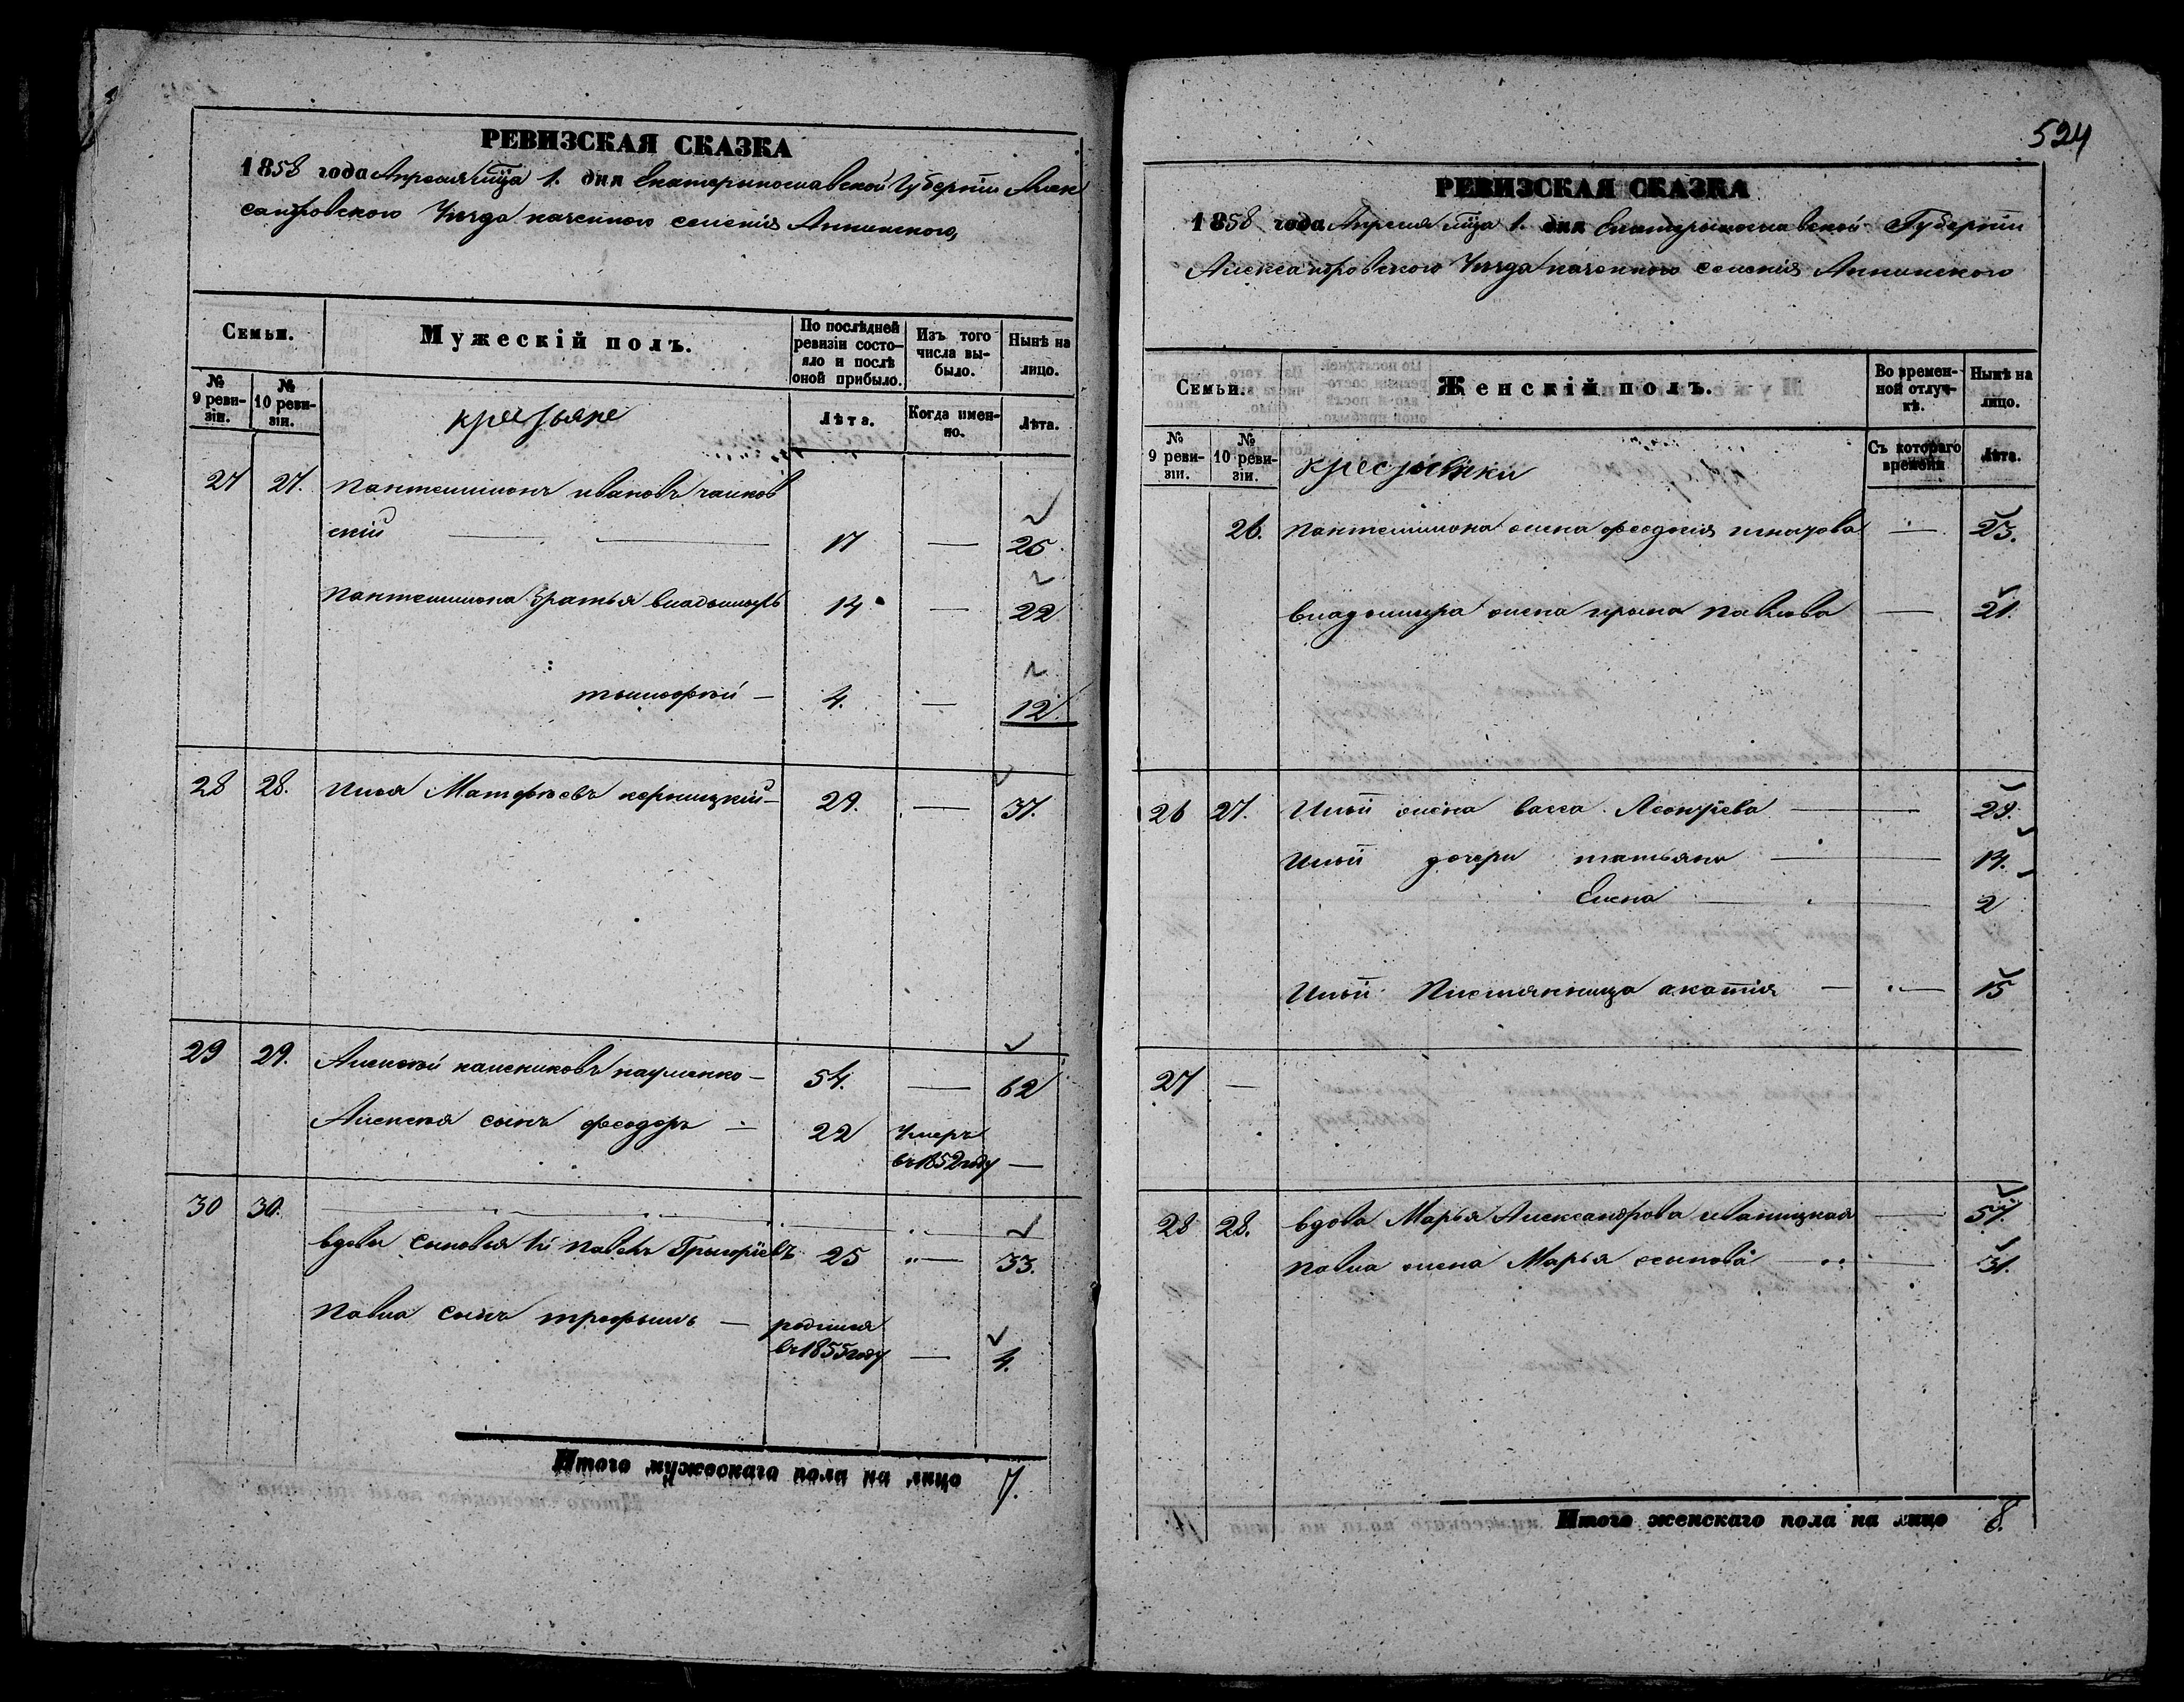 РЕВИЗСКАЯ СКАЗКА
1858 года Апреля мца 1. дня Екатеринославской Губерніи Алек
сандровского Уезда казенного селенія Аннинского,
Семьи.
Мужескій полъ.
По послѣдней ревизіи состояло и послѣ оной прибыло.
Изъ того числа выбыло.
Нынѣ на лицо.
№ 9 ревизіи.
№ 10 ревизіи.
крестьяне
Лѣта.
Когда именно.
Лѣта.
27 27. Пантелимонъ ивановъ чайков
скій — — 17 — 25.
Пантелимона братья владимиръ 14 — 22
тимофей — 4. — 12.
28 28. Илья Матфѣевъ керницкій — 29. — 37.
29 29. Алексѣй калениковъ науменко — 54. — 62
Алексея сынъ феодоръ — 22 Умеръ
въ 1852 году —
30 30.
вдовы сыновья 1й павелъ Григоріевъ 25 — 33.
Павла сынъ трофимъ — родился
въ 1855 году — 4.
Итого мужескаго пола на лицо 7.
524
РЕВИЗСКАЯ СКАЗКА
1858 года Апреля мца 1. дня Екатеринославской Губерніи
Александровского Уезда казенного селенія Аннинского
Семьи.
Женскій полъ.
Во временной отлучкѣ.
Нынѣ на лицо.
№ 9 ревизіи.
№ 10 ревизіи.
крестьянки
Съ котораго времени
Лѣта.
26. Пантелимона жена феодосія игнатова — 23.
владимира жена ирина Павлова — 21.
26 27. Ильи жена васса Леонтіева — 29.
Ильи дочери татьяна — 14.
Елена — 2
Ильи Племяница акатія — 15
27 —
28 28. вдова Марья Александрова иваницкая — 57.
Павла жена Марья осипова — 31.
Итого женскаго пола на лицо 8.